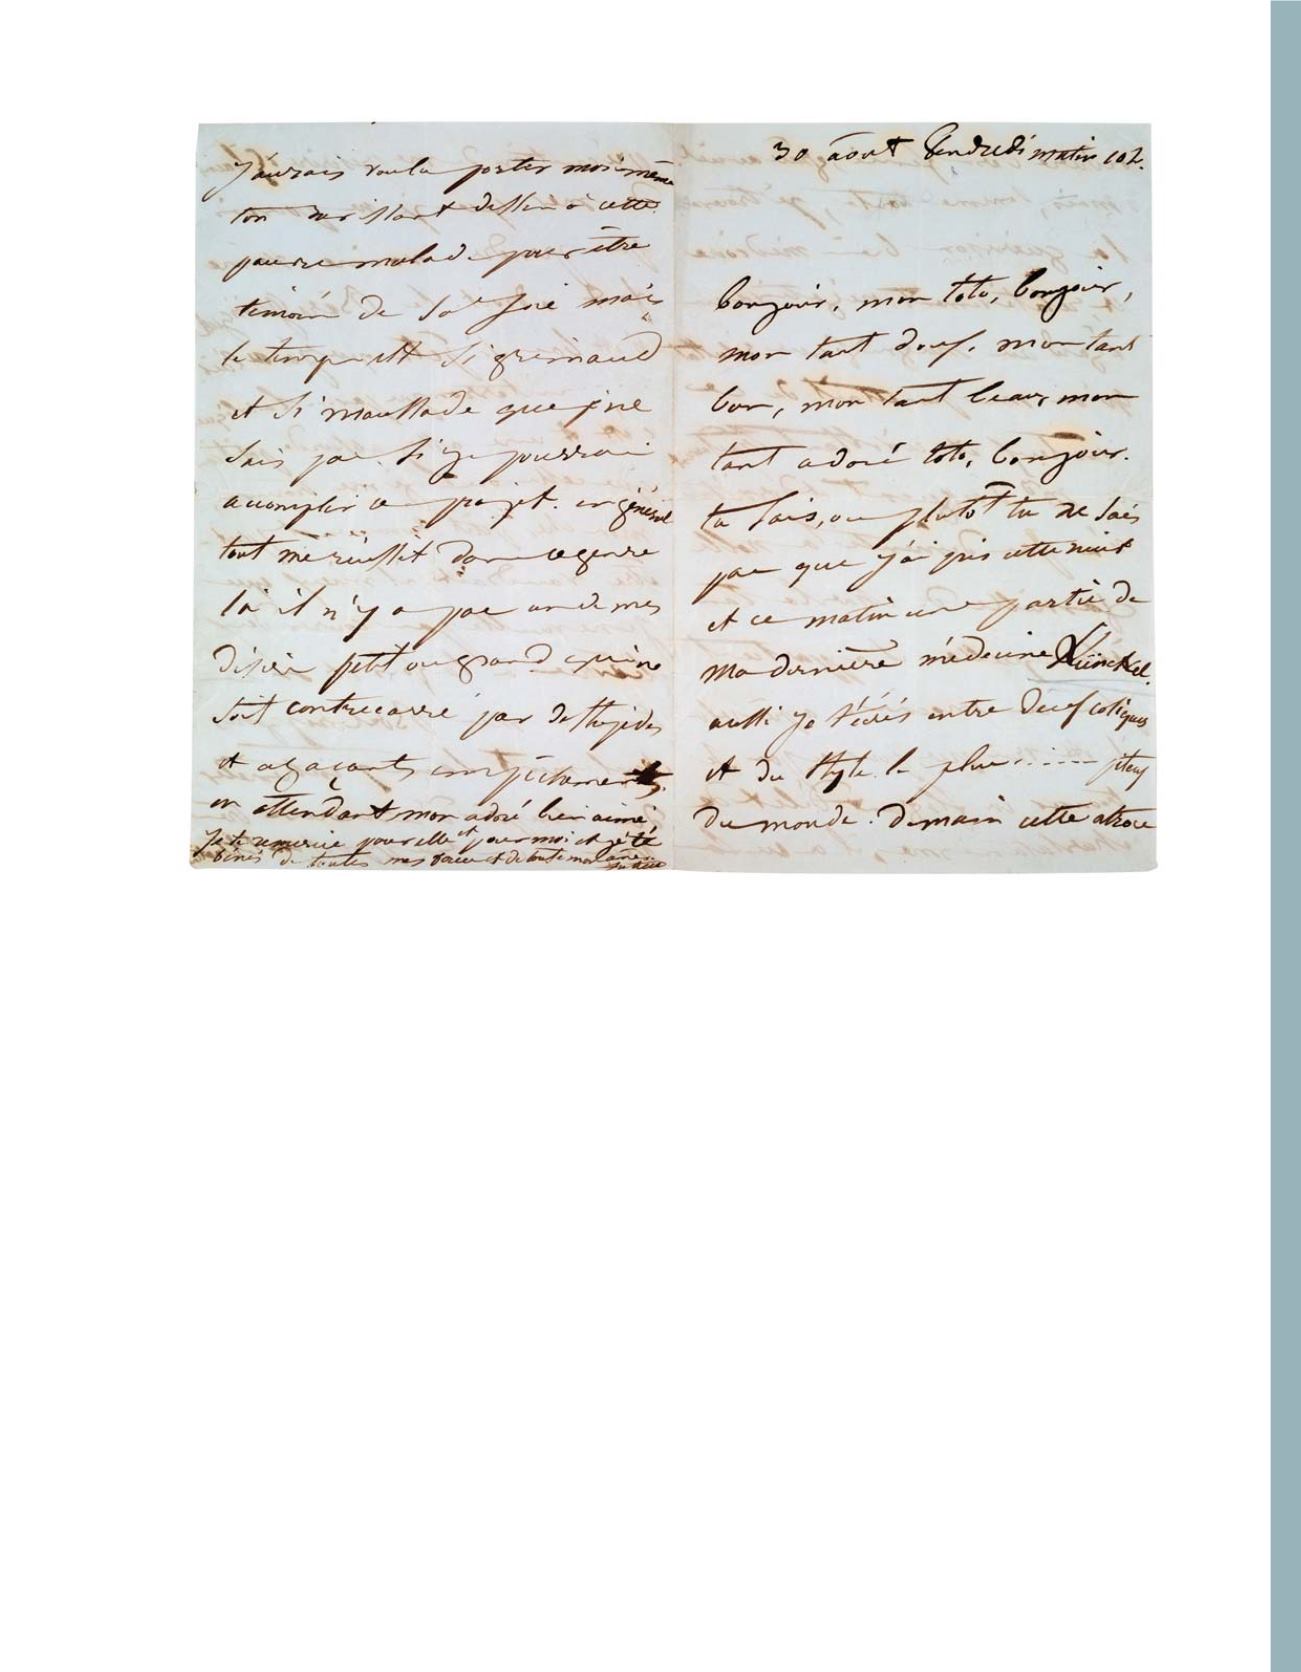 30 aout Vendredi matin 10h.
bonjour, mon toto, bonjour,
mon tant doux, mon tant
bon, mon tant beau, mon
tant adoré toto, bonjour.
tu sais, ou plutôt tu ne sais
pas que j'ai pris cette nuit
et ce matin une partie de
ma dernière médecine
aussi je t'écris entre deux coliques
et du style le plus ...... piteux
du monde. Demain cette atroce
J'aurais voulu porter moi même
ton ravissant dessin à cette
pauvre malade pour être
témoin de sa joie mais
le temps est si grimaud
et si maussade que je ne
sais pas si je pourrai
accomplir ce projet. en général
tout me réussit dans ce genre
là il n'y a pas un de mes
désirs petit ou grand qui ne
soit contrecarré par de stupides
et agaçants empêchements.
en attendant mon adoré bien aimé
Je te remercie pour elle et pour moi et je te
bénis de toutes mes forces et de toute mon âme.